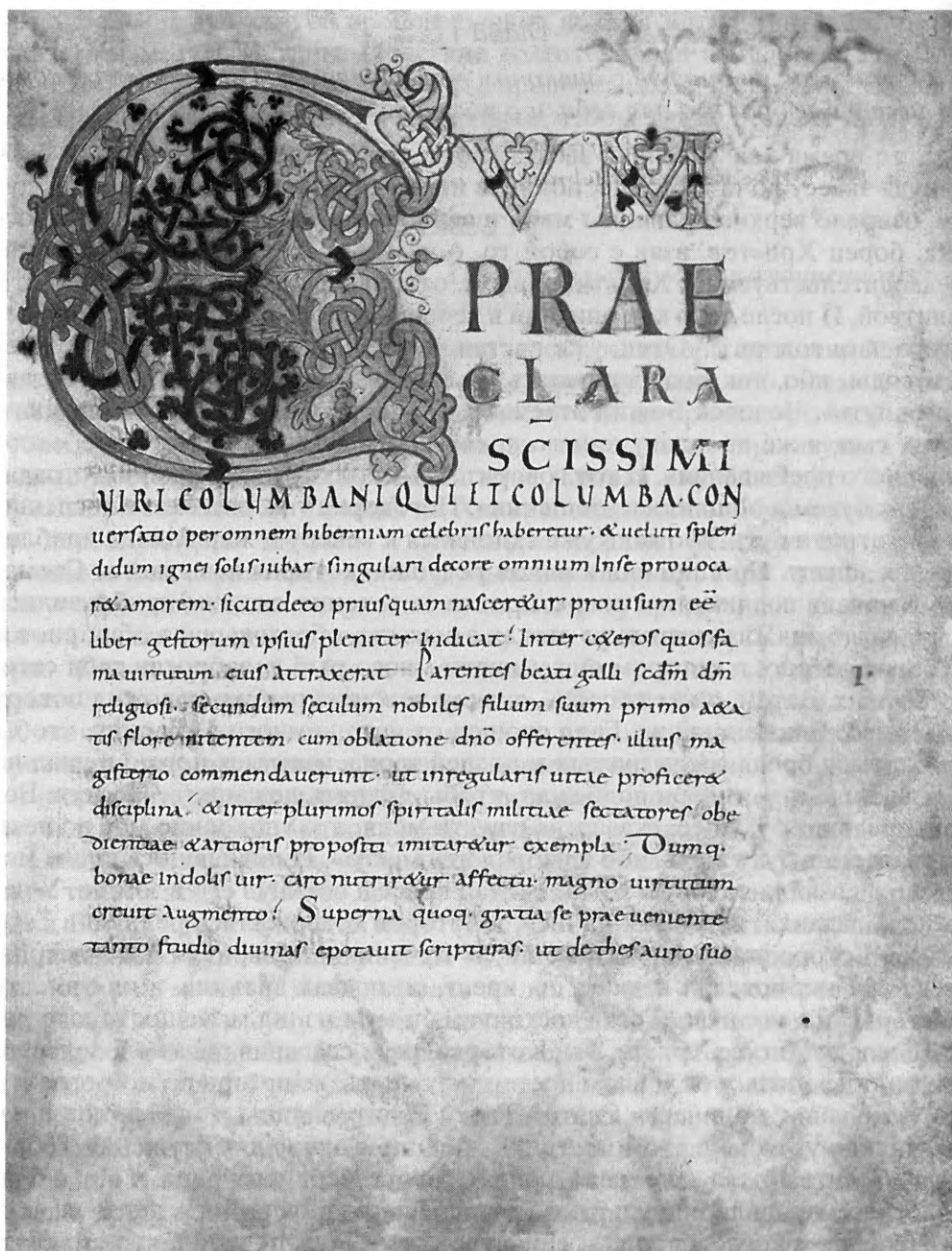 CVM
PRAE
CLARA
SC̄ISSIMI
VIRI COLUMBANI QUI ET COLUMBA · CON
uersatio per omnem hiberniam celebris haberetur · & ueluti splen
didum ignei solis iubar singulari decore omnium in se prouoca
r& amorem · sicuti deeo prius quam nascer&ur prouisum eē
liber gestorum ipsius pleniter indicat · Inter c&eros quos fa
ma uirtutum eius attraxerat Parentes beati galli sedm̄ dm̄
religiosi · secundum seculum nobiles filium suum primo a&a
tis flore nitentem cum oblatione dn̄o offerentes · illius ma
gisterio commendauerunt · ut in regularis uitae proficer&
disciplina · & inter plurimos spiritalis militiae sectatores obe
dientiae & artioris propositi imitar&ur exempla · Dumq·
bonae indolis uir · caro nutrir&ur affectu · magno uirtutum
creuit augmento · Superna quoq· gratia se praeueniente
tanto studio diuinas epotauit scripturas · ut de thesauro suo
I·